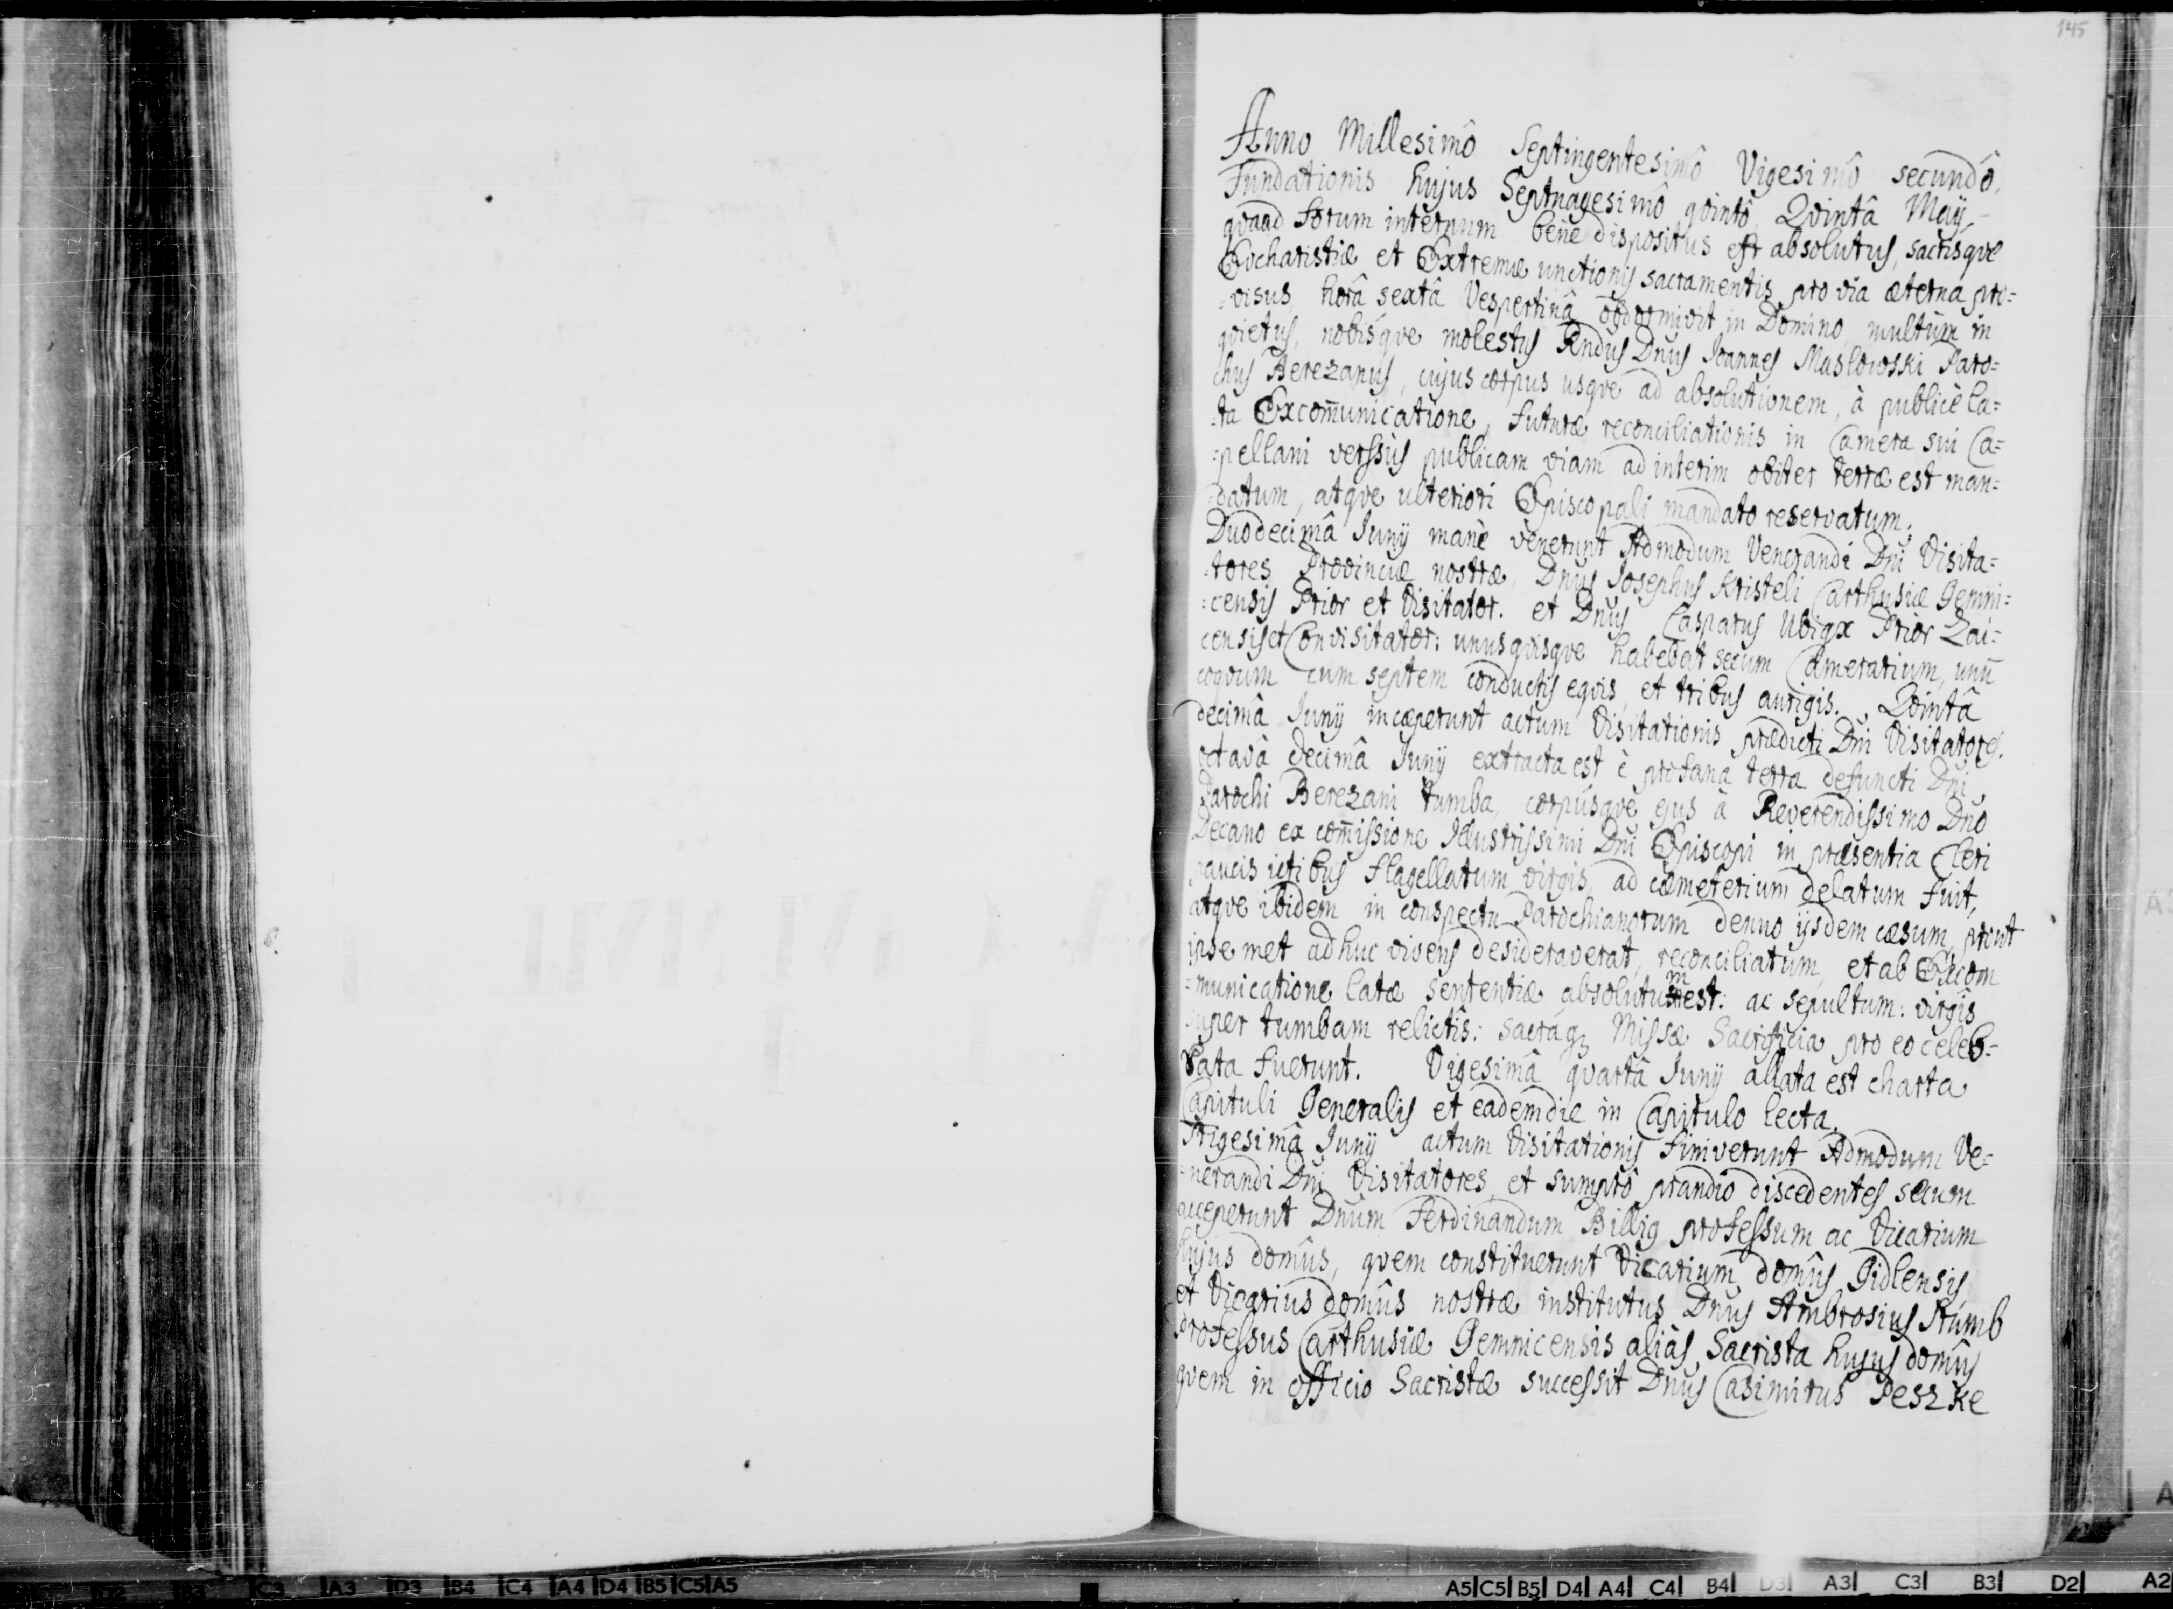 145
Anno Millesimô Septingentesimô Vigesimô secundô,
Fundationis hujus Septuagesimô qvintô, Qvintâ Maij,
qvoad forum internum bene dispositus est absolutus, sacrisqve
Evcharistiæ et Extremæ unctionis sacramentis pro via æterna pro=
=visus, horâ sextâ Vespertinâ obdormivit in Domino, multùm in
qvietus, nobisqve molestus Rndus Dnus Joannes Masłowski Paro=
chus Berezanus, cujus corpus usqve ad absolutionem, à publicè la=
=ta Excom̄unicatione, futuræ reconciliationis in Camera sui Ca=
=pellani verssùs publicam viam ad interim obiter terræ est man=
=datum, atqve ulteriori Episcopali mandato reservatum.
Duodecimâ Junij manè venerunt Admodum Venerandi Dni Visita=
=tores Provinciæ nostræ, Dnus Josephus Kristeli Carthusiæ Gemni=
=censis Prior et Visitator. et Dnus Casparus Ubigx Prior Zai=
censis et Convisitator: unusqvisqve habebat secum Camerarium, unū
coqvum cum septem conductis eqvis, et tribus aurigis. Qvintâ
decimâ Junij incæperunt actum Visitationis prædicti Dni Visitatores.
octavâ decimâ Junij extracta est è profana terra defuncti Dni
Parochi Berezani tumba, corpúsqve ejus à Reverendissimo Dno
Decano ex com̄issione Illustrissimi Dni Episcopi in præsentia Cleri
paucis ictibus flagellatum virgis, ad cæmeterium delatum fuit,
atqve ibidem in conspectu Parochianorum denuo ijsdem cæsum, prout
ipse met adhuc vivens desideraverat, reconciliatum, et ab Excom
=municatione latæ sententiæ absolutum est: ac sepultum: virgis
super tumbam relictis: sacraq; Missæ Sacrificia pro eo celeb=
rata fuerunt. Vigesimâ qvartâ Junij allata est charta
Capituli Generalis et eadem die in Capitulo lecta.
Trigesimâ Junij actum Visitationis finiverunt Admodum Ve=
=nerandi Dni Visitatores, et sumptô prandiô discedentes secum
acceperunt Dnum Ferdinandum Billig professum ac Vicarium
hujus domûs, qvem constituerunt Vicarium domûs Gidlensis,
et Vicarius domûs nostræ institutus Dnus Ambrosius Kumb
professus Carthusiæ Gemnicensis aliàs Sacrista hujus domûs
qvem in officio Sacristæ successit Dnus Casimirus Peszke
A3 D3 B4 C4 A4 D4 B5 C5 A5
A5 C5 B5 D4 A4 C4 B4 D3 A3 C3 B3 D2 A2